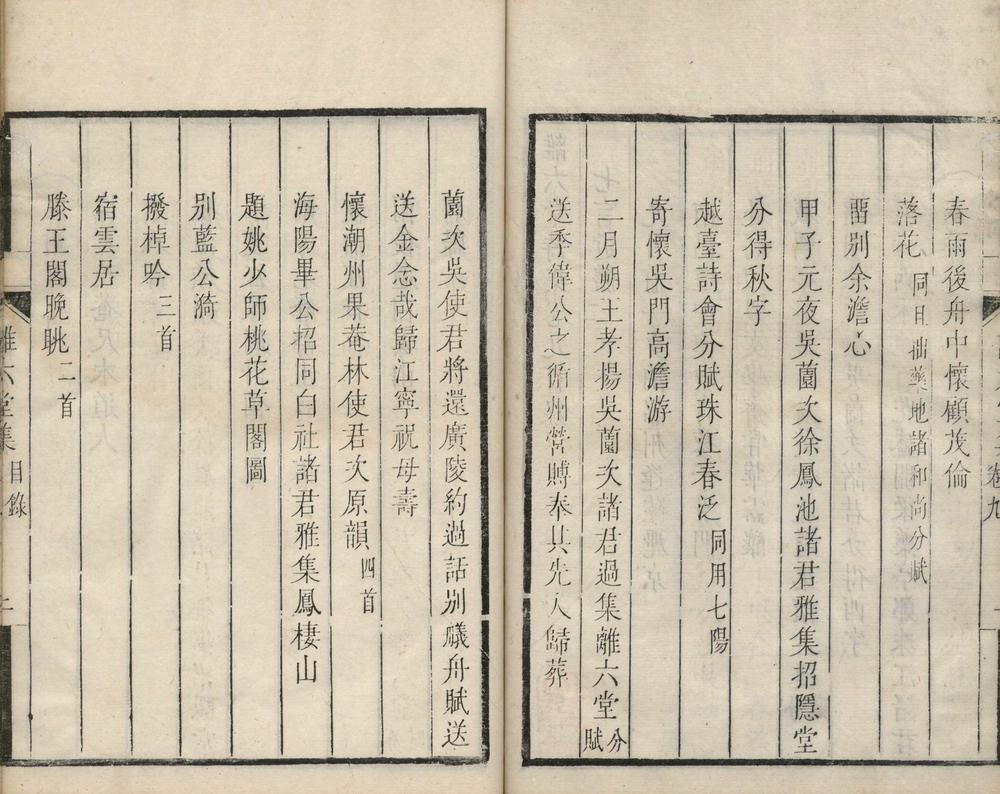 春雨後舟中懷顧茂倫
落花 同目拙藥地諸和尚分賦
畱別余澹心
甲子元夜吳薗次徐鳳池諸君雅集招隱堂
分得秋字
越臺詩會分賦珠江春泛 同用七陽
寄懷吳門高澹游
二月朔王孝揚吳薗次諸君過集離六堂 分賦
送季偉公之循州營賻奉其先人歸葬
薗次吳使君將還廣陵約過話別礙舟賦送
送金念哉歸江寧祝母壽
懷潮州果菴林使君次原韻 四首
海陽畢公招同白社諸君雅集鳳棲山
題姚少師桃花草閣圖
別藍公漪
撥棹吟 三首
宿雲居
滕王閣晚眺 二首
離六堂集 目錄 二